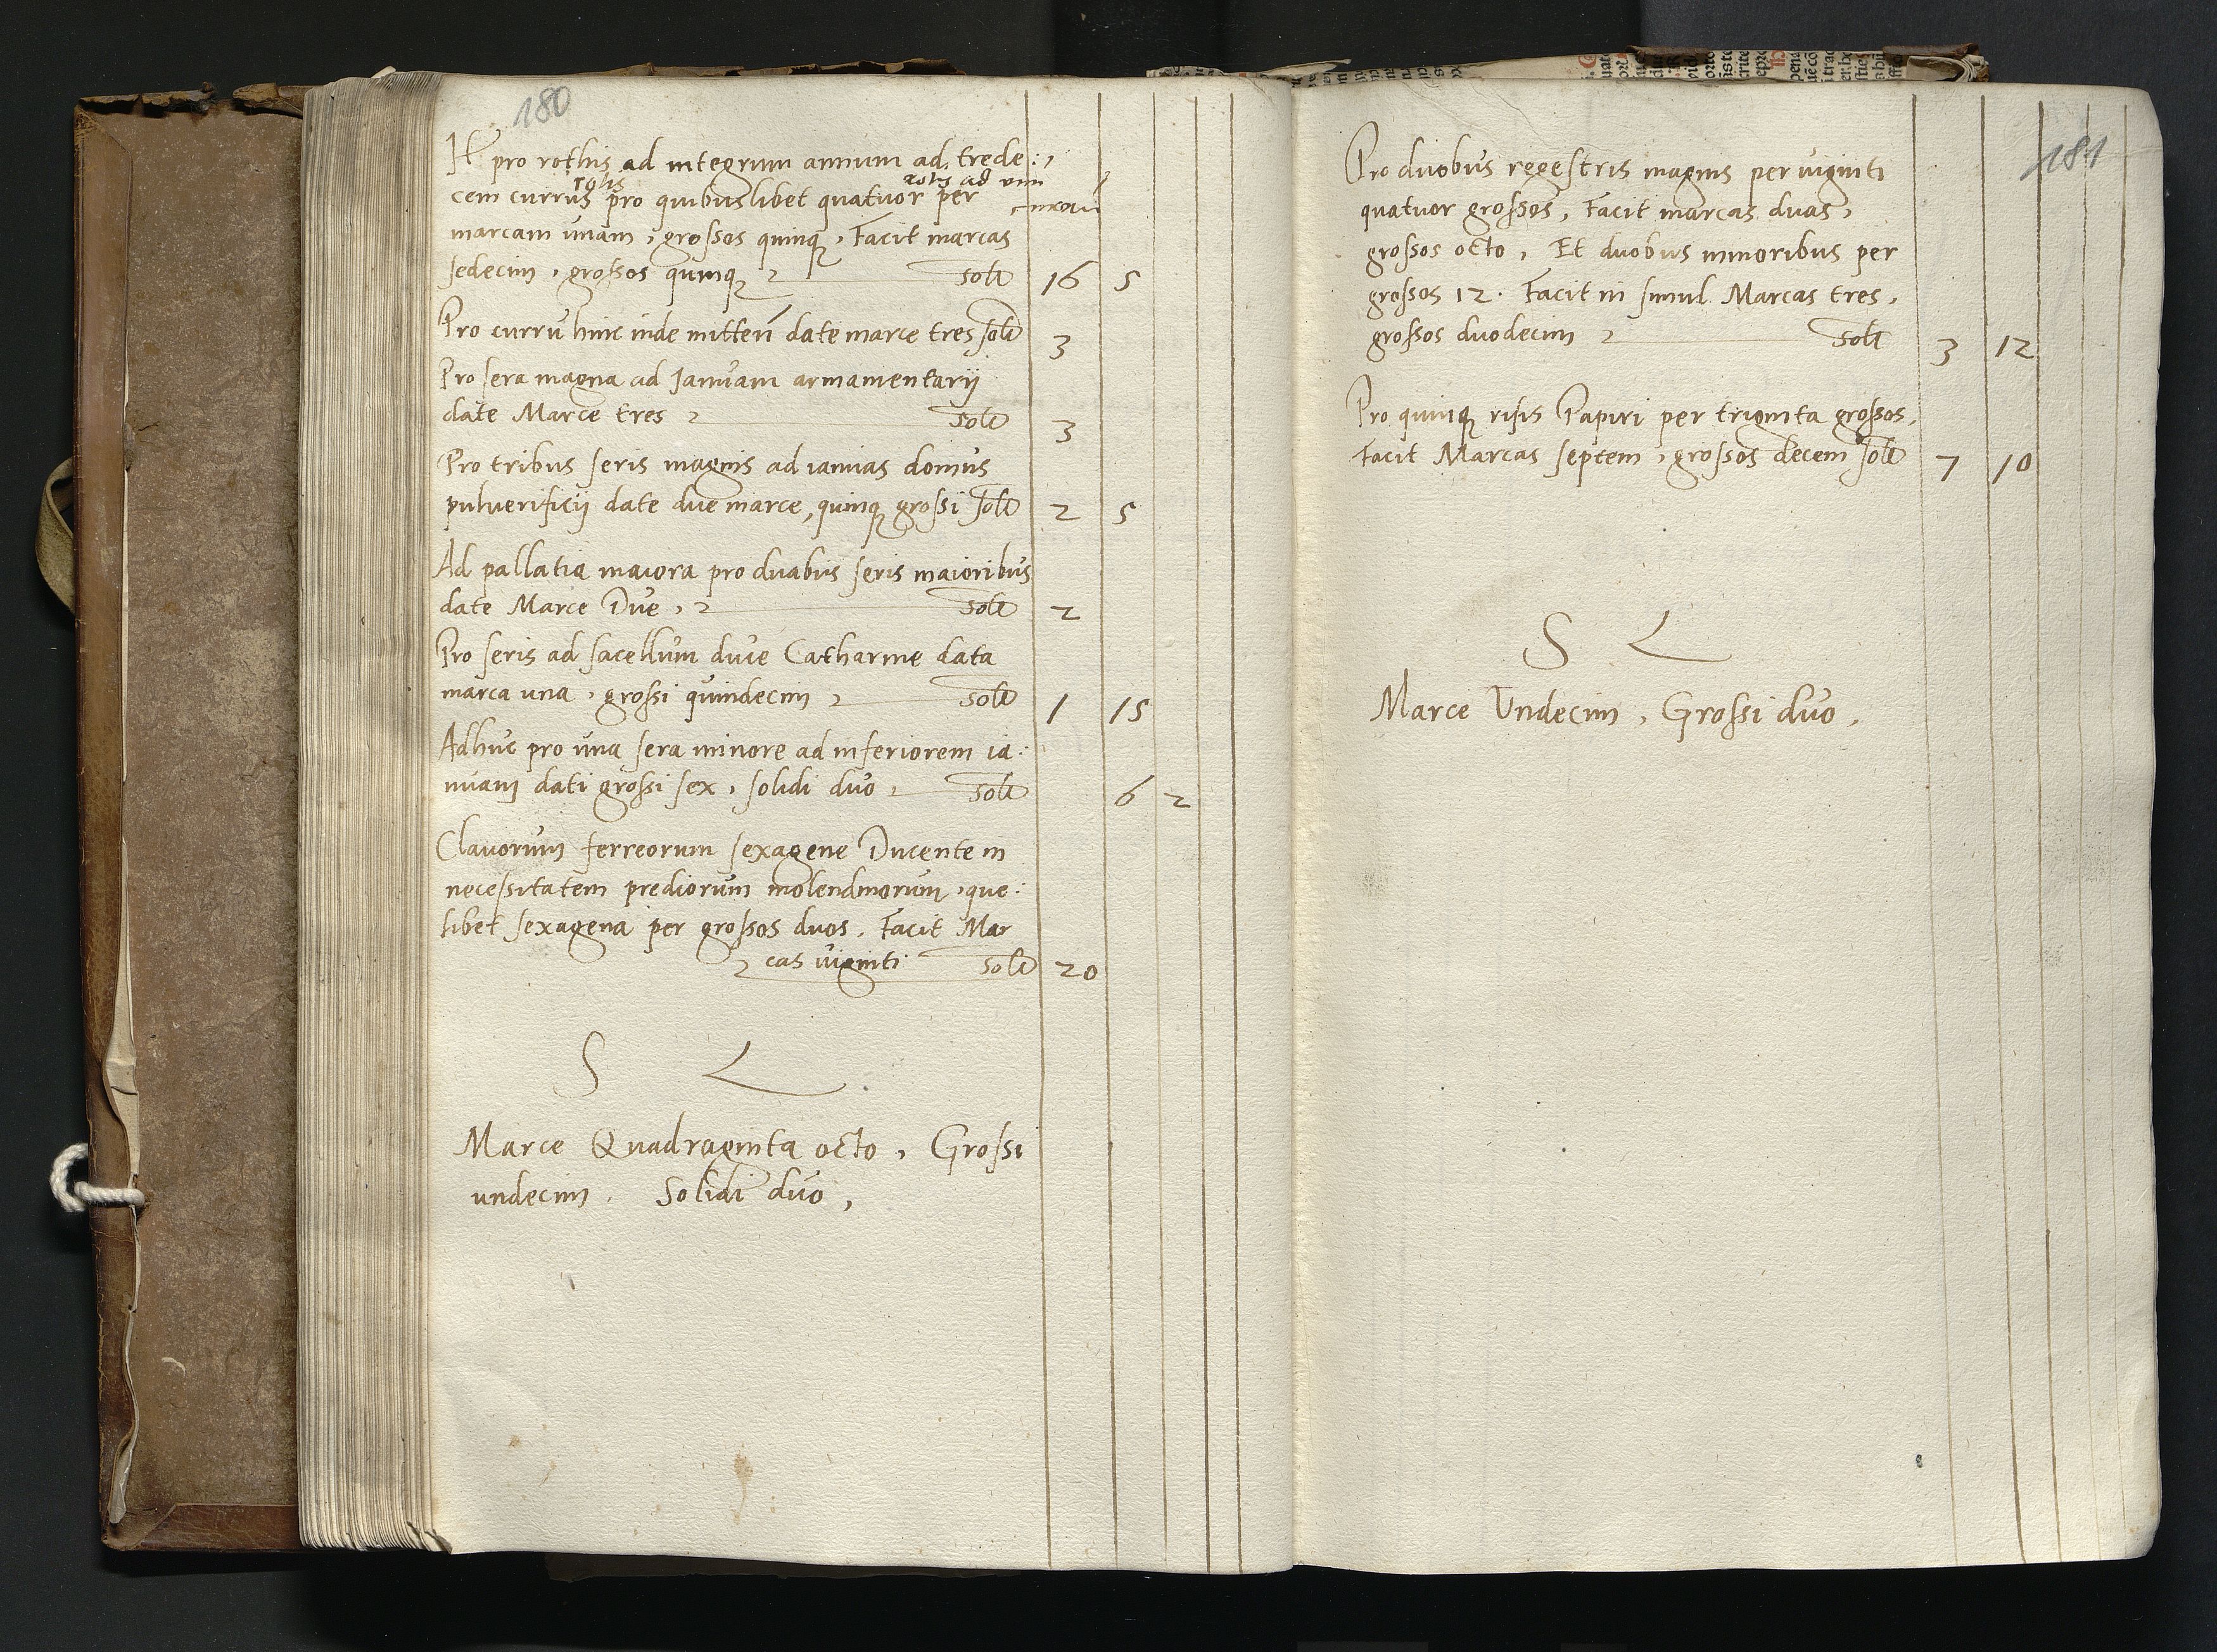 180
It pro rothis ad integrum annum ad trede:,
rotis rotis ad unu
cem currus pro quibuslibet quatuor per currum
marcam unam, grossos quinq, Facit marcas
sedecim, grossos quinq solt 16 5
Pro curru hinc inde mitten date marce tres solt 3
Pro sera magna ad Januam armamentarij
date Marce tres solt 3
Pro tribus seris magnis ad ianuas domus
pulverificij date due marce, quinq grossi solt 2 5
Ad pallatia maiora pro duabus seris maioribus
date Marce Due, solt 2
Pro seris ad sacellum dive Catharine data
marca una, grossi quindecim solt 1 15
Adhuc pro una sera minore ad inferiorem ia:
nuam dati grossi sex, solidi duo, solt 6 2
Clavorum ferreorum sexagene Ducente in
necessitatem prediorum molendinorum, que:
libet sexagena per grossos duos, Facit Mar
cas viginti solt 20
S L
Marce Quadraginta octo, Grossi
undecim. Solidi duo,
181
Pro duobus regestris magnis per viginti
quatuor grossos, Facit marcas duas,
grossos octo, Et duobus minoribus per
grossos 12. Facit in simul Marcas tres,
grossos duodecim solt 3 12
Pro quinq risis Papiri per triginta grossos,
Facit Marcas septem, grossos decem solt 7 10
S L
Marce Undecim, Grossi duo,